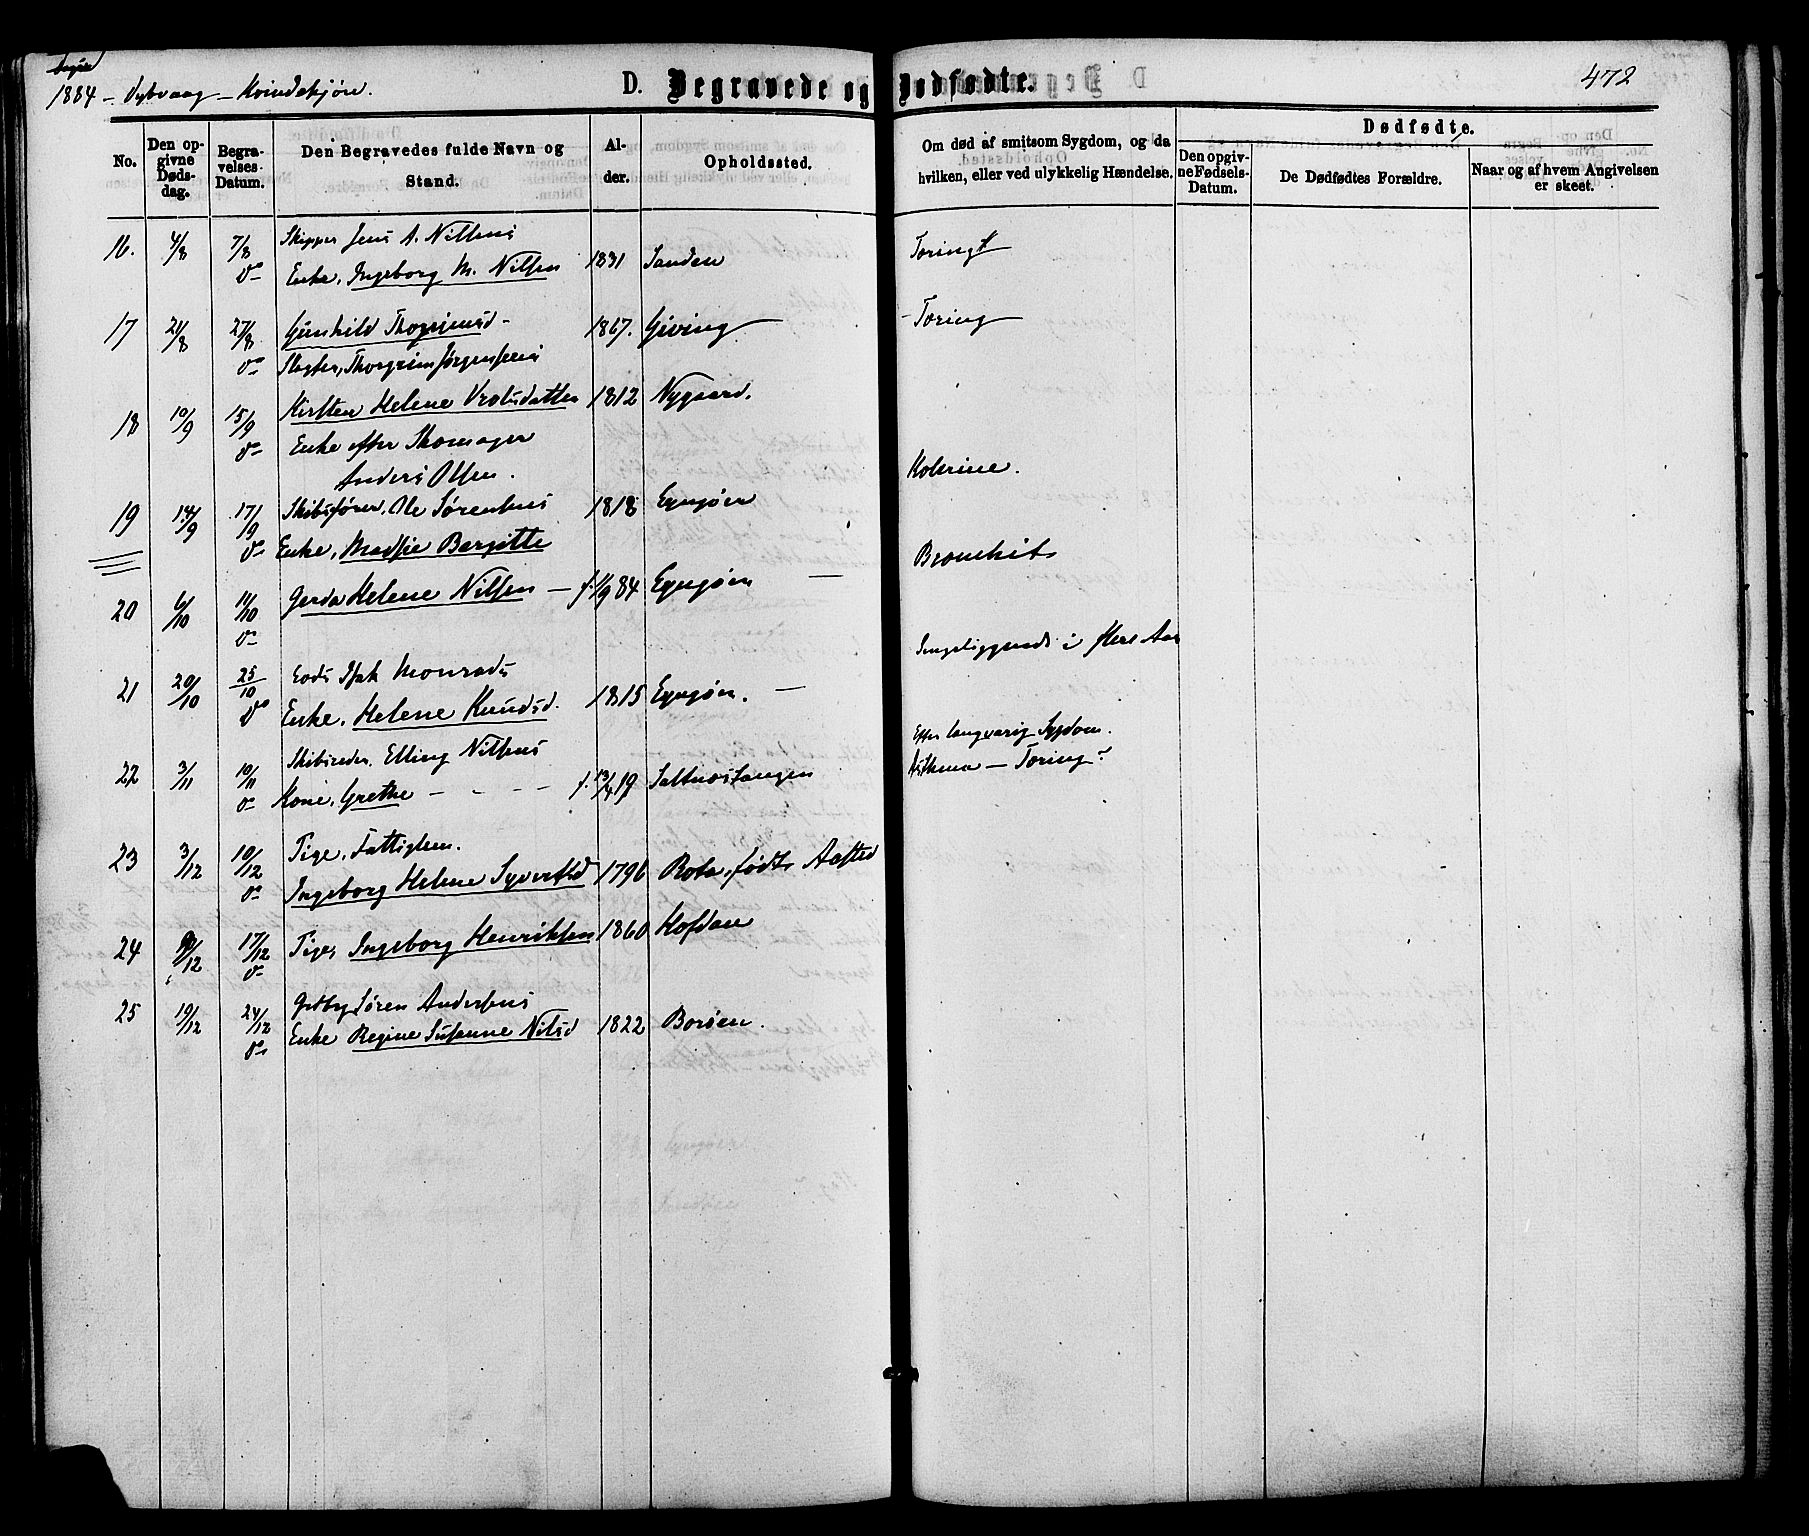 1884 – Dybvaag – Kvindekjøn.
D. Begravede og Dødfødte.
472
No.
Den opgivne Dødsdag.
Begravelses-Datum.
Den Begravedes fulde Navn og Stand.
Alder.
Opholdssted.
Om død af smitsom Sygdom, og da hvilken, eller ved ulykkelig Hændelse.
Dødfødte.
Den opgivne Fødsels-Datum.
De Dødfødtes Forældre.
Naar og af hvem Angivelsen er skeet.
16. 4/8 7/8 Skipper Jens A. Nilsens
Enke, Ingeborg M. Nilsen 1831 Sanden Tæring
17 21/8 27/8 Gunhild
1867. Giving Tæring
Thorgrim Jørgensens
18 10/9 15/9 Kirsten Helene 1812 Nygaard.
Enke efter
Anders Olsen.
Kolerine.
19 14/9 17/9 Skibsfører, Ole Sørensens 1818 Eynøen
Enke, Madsie Bergitte
Bronchit
20 6/10 11/10 Gerda Helene Nilsen – f. 1/9 84
Sengeliggende i flere Aar
21 20/10 25/10 Lods Isak Monrads
Enke, Helene Knudsd. 1815
Efter langvarig Sygdom.
22 3/11 10/11 Skibsreder, Elling Nilsens
Kone, Grethe – – – f. 13/4 19 Saltnestangen Asthma – Tæring?
23 3/12 10/12 Pige, Fattiglem.
Ingeborg Helene Syvertsd 1796 Rota, født
24 9/12 17/12 Pige, Ingeborg Henriksen 1860
25 19/12 24/12 Søren Andersens
Enke Regine Susanne Nilsd 1822 Borøen.